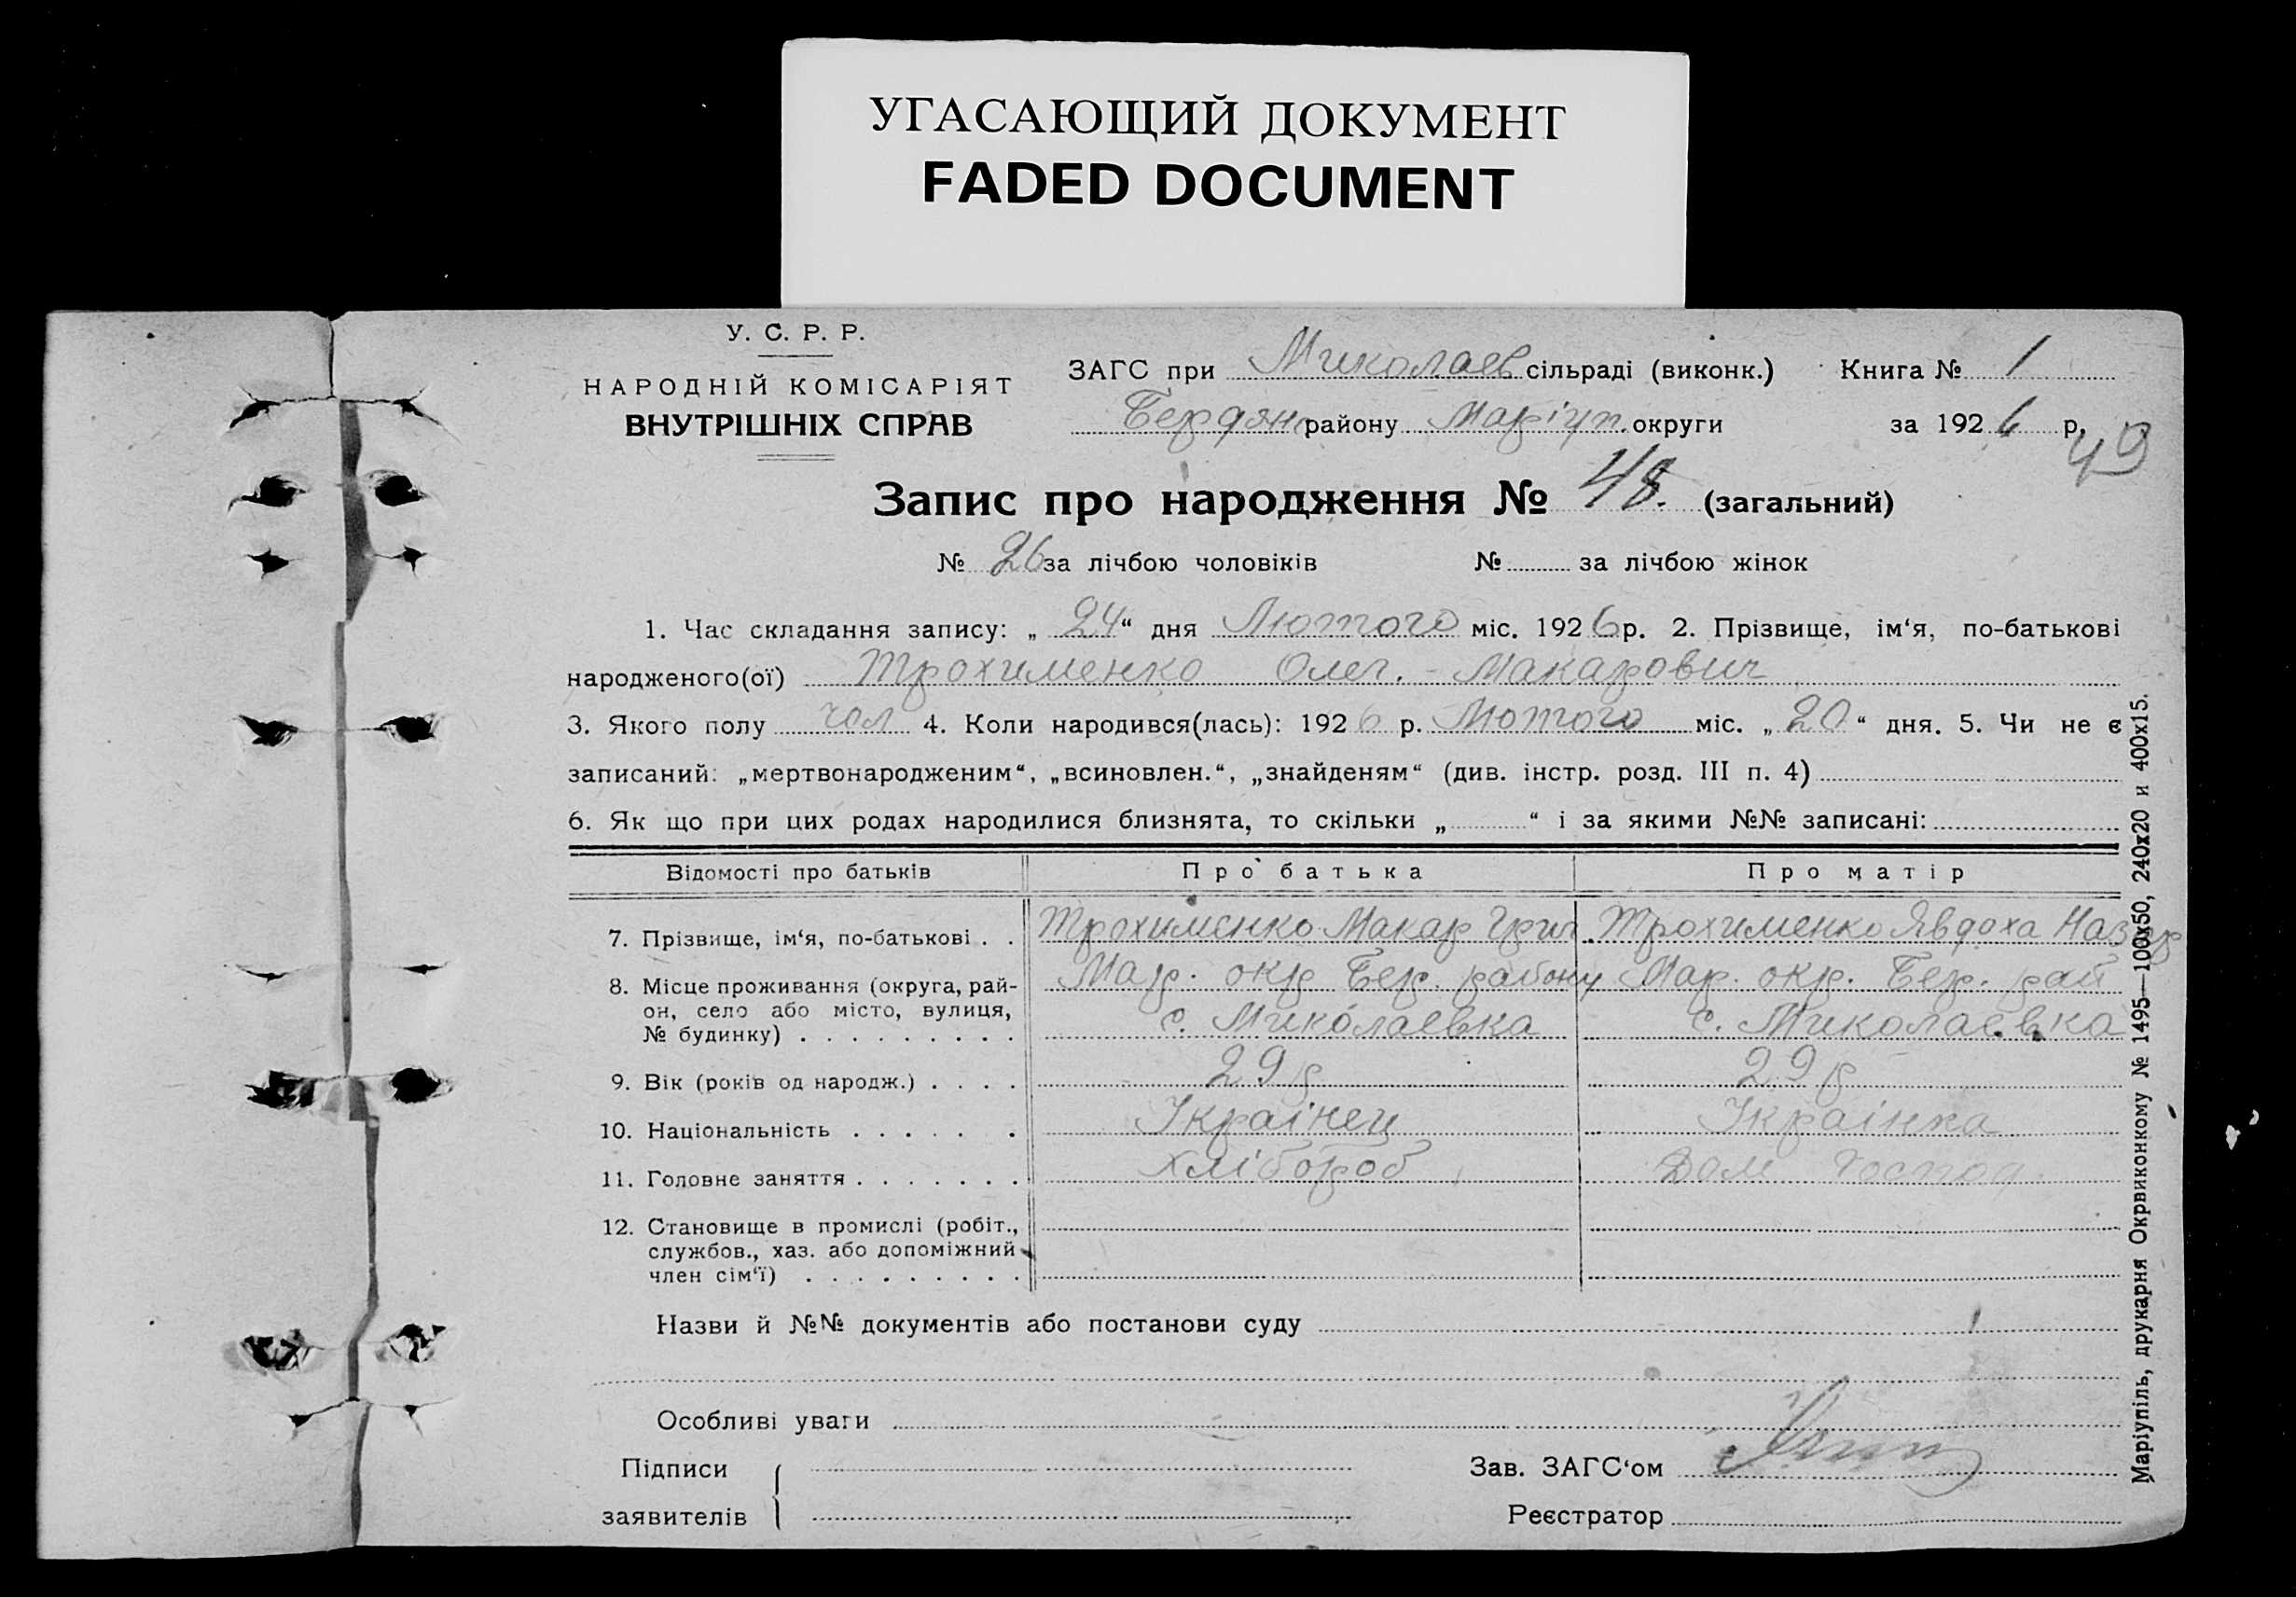 УГАСАЮЩИЙ ДОКУМЕНТ
FADED DOCUMENT
У. С. Р. Р.
НАРОДНІЙ КОМІСАРІЯТ
ВНУТРІШНІХ СПРАВ
ЗАГС при Миколаєв сільраді (виконк.) Книга № 1
Бердян району Маріуп. округи за 1926 р.
49
Запис про народження № 48. (загальний)
№ 26 за лічбою чоловіків № за лічбою жінок
1. Час складання запису: „ 24 “ дня Лютого міс. 1926 р. 2. Прізвище, ім‘я, по-батькові
народженого(ої) Трохименко Олег. Макарович
3. Якого полу чол 4. Коли народився(лась): 1926 р. Лютого міс. „ 20 “ дня. 5. Чи не є
записаний: „мертвонародженим“, „всиновлен.“, „знайденям“ (див. інстр. розд. III п. 4)
6. Як що при цих родах народилися близнята, то скільки „ “ і за якими №№ записані:
Відомості про батьків Про батька Про матір
7. Прізвище, ім‘я, по-батькові . . Трохименко Макар Григ. Трохименко Явдоха Назар
8. Місце проживання (округа, рай- Мар. окр Бер. району Мар. окр. Бер. рай
он, село або місто, вулиця, с. Миколаевка с. Миколаевка
№ будинку) . . . . . . . . .
9. Вік (років од народж.) . . . . 29 р 29 р
10. Національність . . . . . . Українец Українка
11. Головне заняття . . . . . . . Хлібороб Дом господ
12. Становище в промислі (робіт.,
службов., хаз. або допоміжний
член сім‘ї) . . . . . . . . .
Назви й №№ документів або постанови суду
Особливі уваги
Підписи
заявителів
Зав. ЗАГС‘ом
Реєстратор
Маріупіль, друкарня Окрвиконкому № 1495—100х50, 240х20 и 400х15.